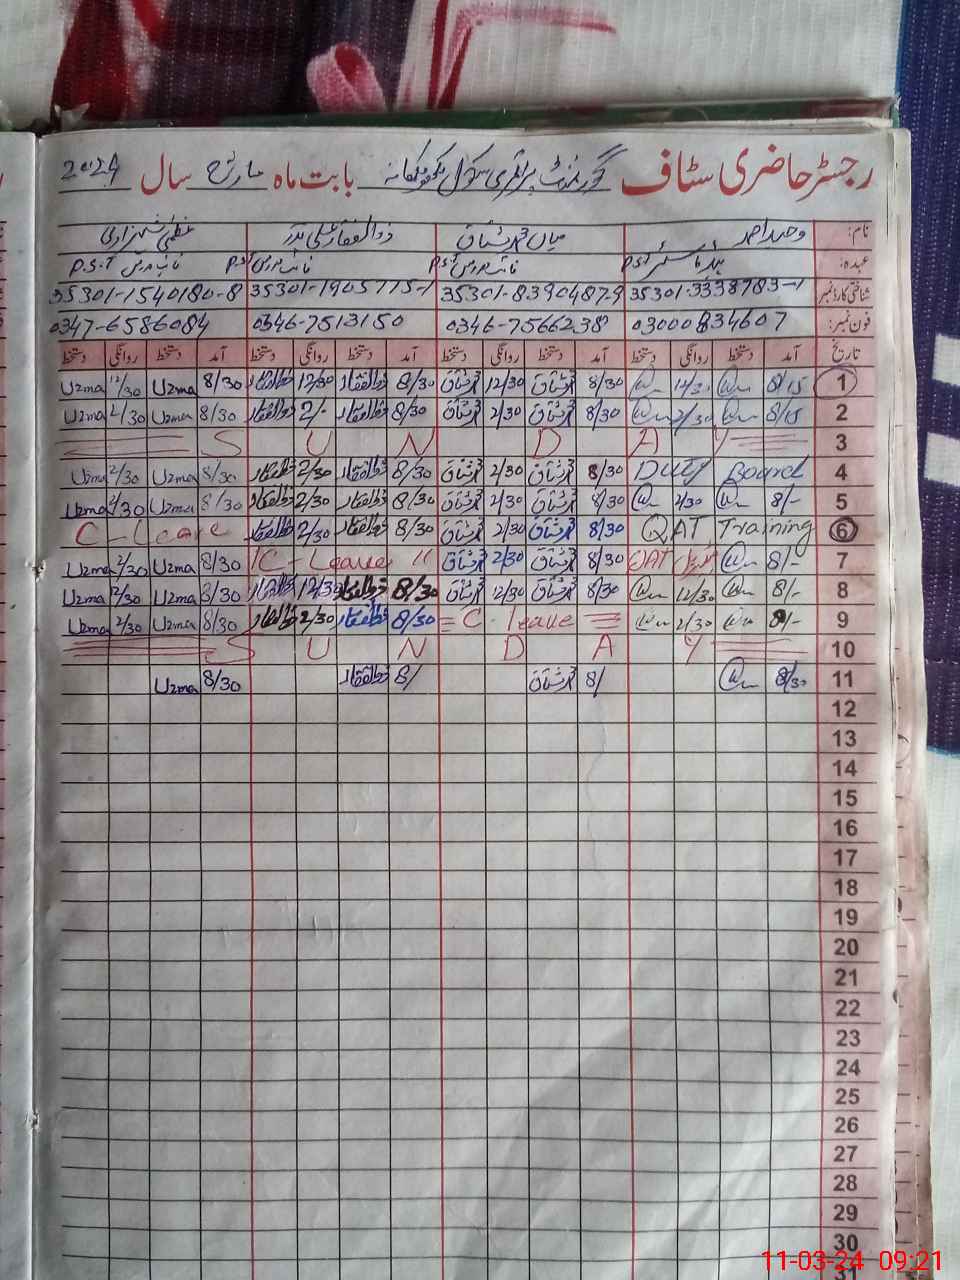 رجسٹر حاضری سٹاف گورنمنٹ پرائمری سکول بابت ماہ مارچ سال 2024
نام: وحید احمد میاں محمد مشتاق ذوالفقار علی بدر عظمیٰ شہزادی
عہدہ: ہیڈ ماسٹر PST نائب مدرس PST نائب مدرس P.S نائب مدرس P.S.T
شناختی کارڈ نمبر 35301-3338783-1 35301-8390487-9 35301-1905715-1 35301-1540180-8
فون نمبر: 03000834607 0346-7566238 0346-7513150 0347-6586084
تاریخ آمد دستخط روانگی دستخط آمد دستخط روانگی دستخط آمد دستخط روانگی دستخط آمد دستخط روانگی دستخط
1 8/15 12/30 8/30 مشتاق 12/30 مشتاق 8/30 ذوالفقار 12/30 ذوالفقار 8/30 Uzma 12/30 Uzma
2 8/15 2/30 8/30 مشتاق 2/30 مشتاق 8/30 ذوالفقار 2/- ذوالفقار 8/30 Uzma 2/30 Uzma
3 S U N D A Y
4 Duty Board 8/30 مشتاق 2/30 مشتاق 8/30 ذوالفقار 2/30 ذوالفقار 8/30 Uzma 2/30 Uzma
5 8/- 2/30 8/30 مشتاق 2/30 مشتاق 8/30 ذوالفقار 2/30 ذوالفقار 8/30 Uzma 2/30 Uzma
6 QAT Training 8/30 مشتاق 2/30 مشتاق 8/30 ذوالفقار 2/30 ذوالفقار C-Leave
7 8/- QAT 8/30 مشتاق 2/30 مشتاق C-Leave 8/30 Uzma 2/30 Uzma
8 8/- 12/30 8/30 مشتاق 12/30 مشتاق 8/30 ذوالفقار 12/30 ذوالفقار 8/30 Uzma 12/30 Uzma
9 8/- 2/30 C-leave 8/30 ذوالفقار 2/30 ذوالفقار 8/30 Uzma 2/30 Uzma
10 S U N D A Y
11 8/30 8/ مشتاق 8/ ذوالفقار 8/30 Uzma
12
13
14
15
16
17
18
19
20
21
22
23
24
25
26
27
28
29
30
31
11-03-24 09:21